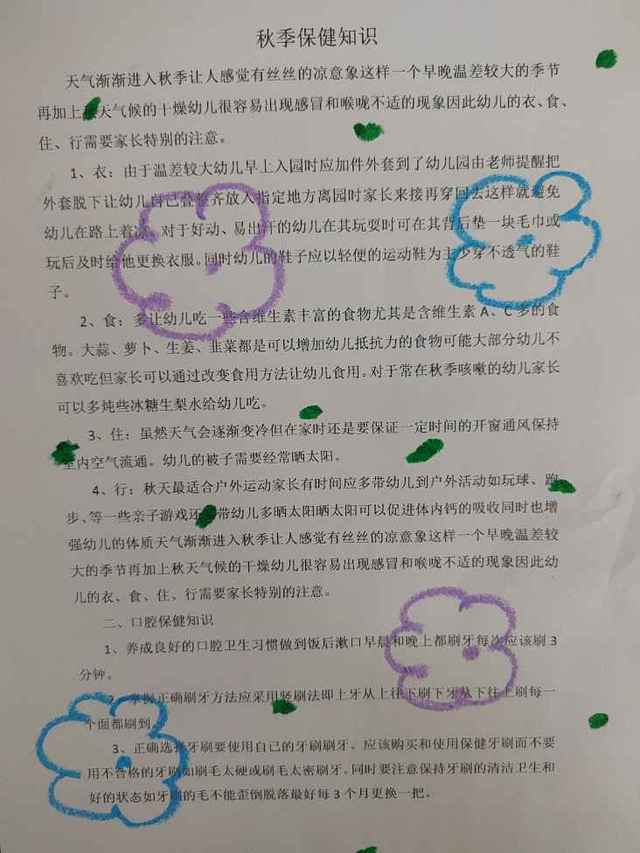 秋季保健知识
天气渐渐进入秋季让人感觉有丝丝的凉意象这样一个早晚温差较大的季节
再加上秋天气候的干燥幼儿很容易出现感冒和喉咙不适的现象因此幼儿的衣、食、
住、行需要家长特别的注意。
1、衣：由于温差较大幼儿早上入园时应加件外套到了幼儿园由老师提醒把
外套脱下让幼儿自己叠整齐放入指定地方离园时家长来接再穿回去这样就避免
幼儿在路上着凉。对于好动、易出汗的幼儿在其玩耍时可在其背后垫一块毛巾或
玩后及时给他更换衣服。同时幼儿的鞋子应以轻便的运动鞋为主少穿不透气的鞋
子。
2、食：多让幼儿吃一些含维生素丰富的食物尤其是含维生素 A、C 多的食
物。大蒜、萝卜、生姜、韭菜都是可以增加幼儿抵抗力的食物可能大部分幼儿不
喜欢吃但家长可以通过改变食用方法让幼儿食用。对于常在秋季咳嗽的幼儿家长
可以多炖些冰糖生梨水给幼儿吃。
3、住：虽然天气会逐渐变冷但在家时还是要保证一定时间的开窗通风保持
室内空气流通。幼儿的被子需要经常晒太阳。
4、行：秋天最适合户外运动家长有时间应多带幼儿到户外活动如玩球、跑
步、等一些亲子游戏还带幼儿多晒太阳晒太阳可以促进体内钙的吸收同时也增
强幼儿的体质天气渐渐进入秋季让人感觉有丝丝的凉意象这样一个早晚温差较
大的季节再加上秋天气候的干燥幼儿很容易出现感冒和喉咙不适的现象因此幼
儿的衣、食、住、行需要家长特别的注意。
二、口腔保健知识
1、养成良好的口腔卫生习惯做到饭后漱口早晨和晚上都刷牙每次应该刷 3
分钟。
2、掌握正确刷牙方法应采用竖刷法即上牙从上往下刷下牙从下往上刷每一
个面都刷到。
3、正确选择牙刷要使用自己的牙刷刷牙。应该购买和使用保健牙刷而不要
用不合格的牙刷如刷毛太硬或刷毛太密刷牙。同时要注意保持牙刷的清洁卫生和
好的状态如牙刷的毛不能歪倒脱落最好每 3 个月更换一把。